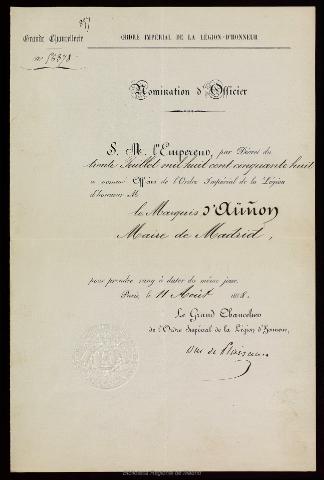 Grande Chancellerie
ORDRE IMPÉRIAL DE LA LÉGION-D'HONNEUR
Nomination d'Officier
S. M. l'Empereur, par Décret du
trente Juillet mil huit cent cinquante huit
a nommé Officier de l'Ordre Impérial de la Légion
d'honneur M
le Marquis d'Aüñon
Maire de Madrid,
pour prendre rang à dater du même jour.
Paris, le 11 Août 1858.
Le Grand Chancelier
de l'Ordre Impérial de la Légion d'Honneur,
Duc de
Biblioteca Regional de Madrid